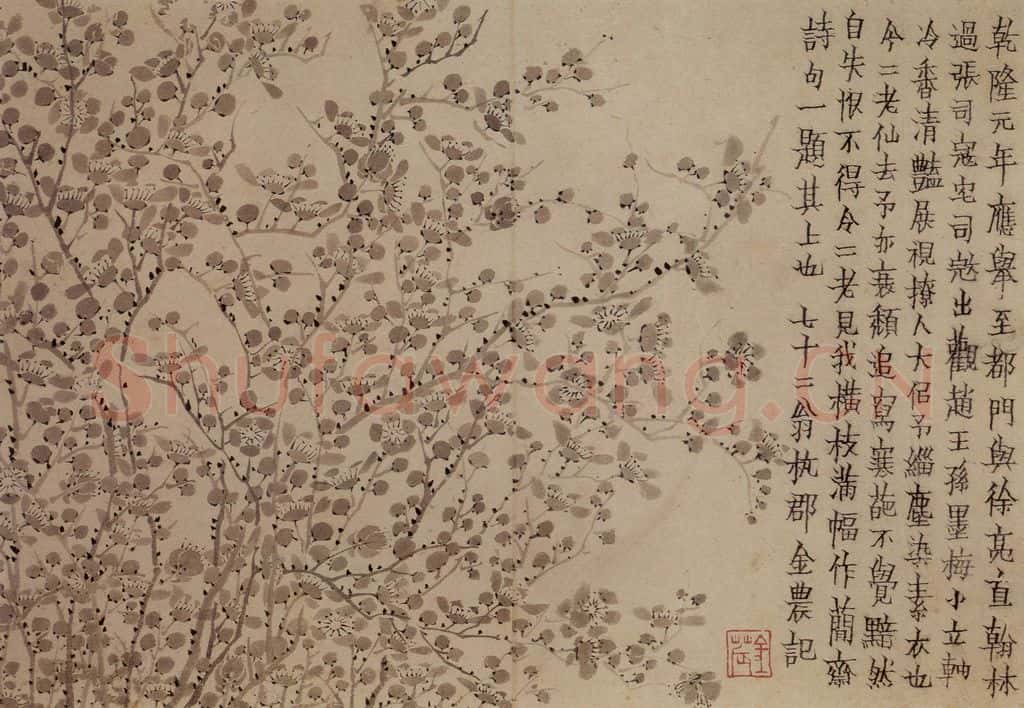 乾隆元年應舉至都門與徐亮直翰林
過張司寇宅司寇出觀趙王孫墨梅小立軸
冷香清艷展視撩人大侣予緇塵染素衣也
今二老仙去予亦衰頹追寫寒葩不覺黯然
自失恨不得令二老見我橫枝滿幅作蕳齋
詩句一題其上也 七十二翁杭郡金農記
Shufawang.CN